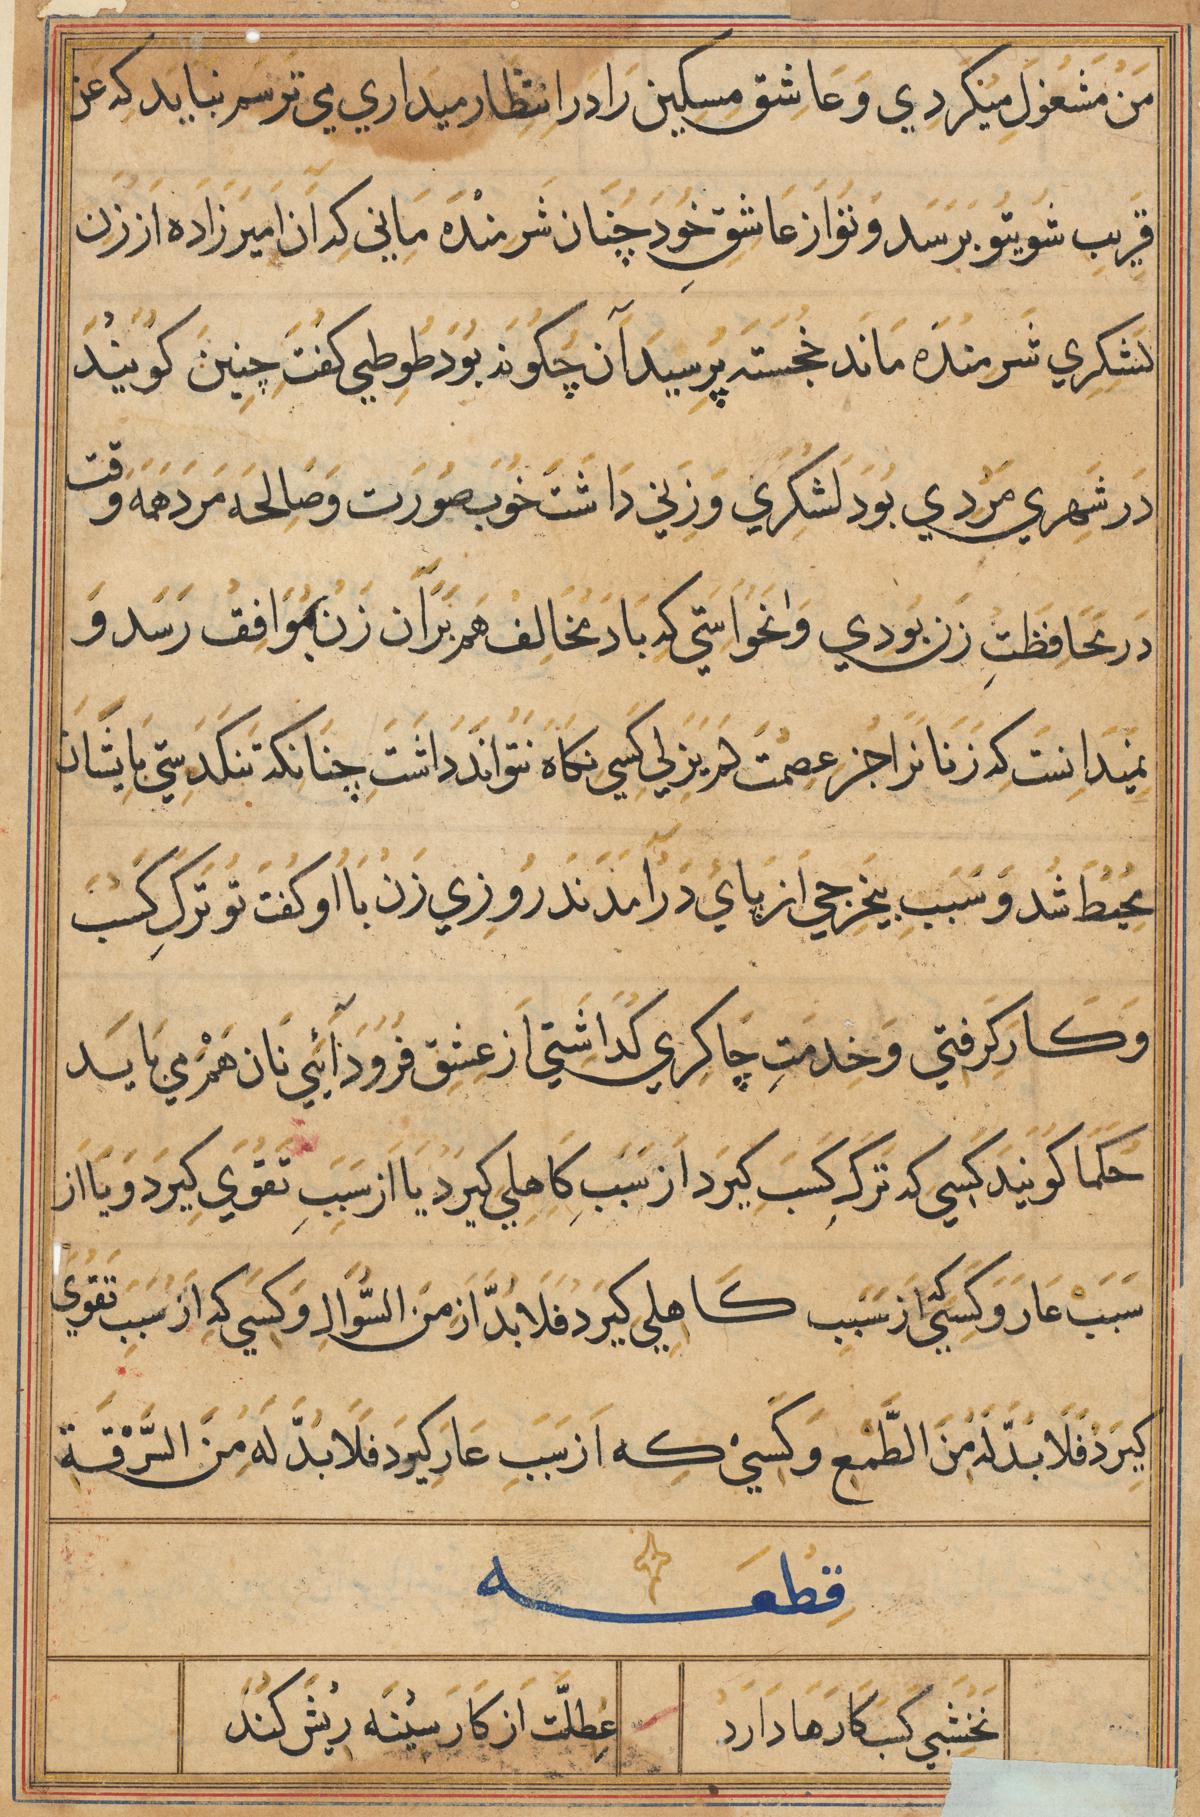 من مشغول میکردي و عاشق مسکین را در انتظار میداري می ترسم نباید که عن
قریب شوی تو برسد و تو از عاشق خود چنان شرمنده مانی که آن امیرزاده از زن
لشکري شرمنده ماند خجسته پرسید آن چکونه بود طوطی کفت چنین کویند
در شهري مردي بود لشکري و زنی داشت خوب صورت و صالحه مرد همه وقت
در محافظت زن بودي و نخواستی که باد مخالف هم بر آن زن موافق رسد و
نمیدانست که زنانرا جز عصمت لم یزلی کسی نکاه نتواند داشت چنانکه تنکدستی بایشان
محیط شد و سبب بیخرجی از پای درآمدند روزي زن با او کفت تو ترک کسب
و کار کرفتی و خدمت چاکري کذاشتی از عشق فرود آئی نان هم می باید
حکما کویند کسی که ترک کسب کیرد از سبب کاهلی کیرد یا از سبب تقوي کیرد و یا از
سبب عار و کسی از سبب کاهلی کیرد فلا بد از من السؤال و کسی که از سبب تقوي
کیرد فلا بد له من الطمع و کسی که از سبب عار کیرد فلا بد له من السرقة
قطعه
نخشبی کسب کارها دارد عطلت از کار سینه ریش کند